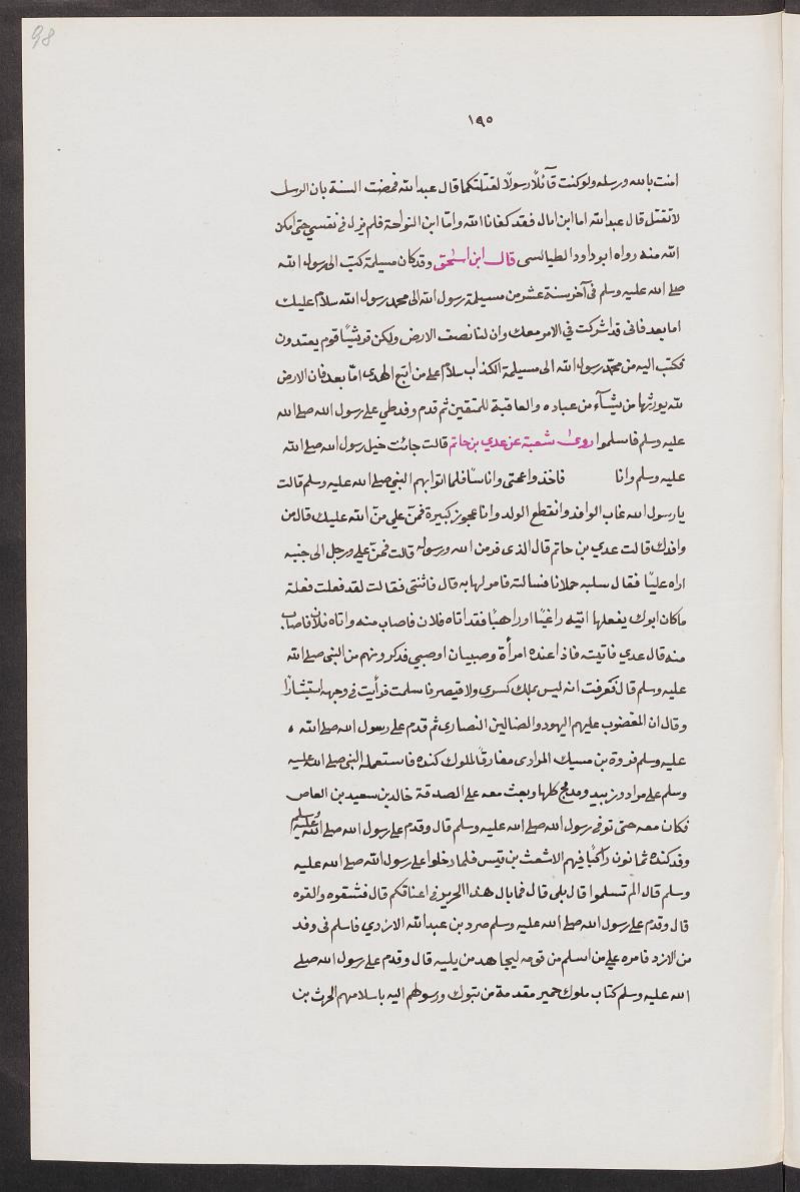 98
١٩٥
امنت بالله ورسله ولو كنت قآئلًا رسولًا لقتلتكما قال عبد الله فمضت السنة بان الرسل
لا تقتل قال عبد الله اما ابن اثال فقد كفانا الله واما ابن النواحة فلم يزل في نفسي حتى امكن
الله منه رواه ابو داود الطيالسى قال ابن اسحق وقد كان مسيلمة كتب الى رسول الله
صلى الله عليه وسلم فى آخر سنة عشر من مسيلمة رسول الله الى محمد رسول الله سلام عليك
اما بعد فانى قد اشركت في الامر معك وان لنا نصف الارض ولكن قريشًا قوم يعتدون
فكتب اليه من محمد رسول الله الى مسيلمة الكذاب سلام على من اتبع الهدى امّا بعد فان الارض
لله يورثها من يشآء من عباده والعاقبة للمتقين ثم قدم وفد طي على رسول الله صلى الله
عليه وسلم فاسلموا روى شعبة عن عدي بن حاتم قالت جائت خيل رسول الله صلى الله
عليه وسلم وانا فاخذوا عمتى وانا سا فلما اتوا بهم النبي صلى الله عليه وسلم قالت
يا رسول الله غاب الوافد وانقطع الولد وانا عجوز كبيرة فمنّ علي منّ الله عليك قال من
وافدك قالت عدي بن حاتم قال الذى فر من الله ورسوله قالت فمنّ علي ورجل الى جنبه
اراه عليّا فقال سليه حملانا فسالته فامر لها به قال فاتتنى فقالت لقد فعلت فعلة
ما كان ابوك يفعلها ائتيه راغبًا او راهبًا فقد اتاه فلان فاصاب منه واتاه فلان فاصاب
منه قال عدي فاتيته فاذا عنده امرأة وصبيان او صبي فذكر قربهم من النبى صلى الله
عليه وسلم قال فعرفت انه ليس بملك كسرى ولا قيصر فاسلمت فرأيت في وجهه استبشارًا
وقال ان المغضوب عليهم اليهود والضالين النصارى ثم قدم على رسول الله صلى الله
عليه وسلم فروة بن مسيك المرادى مفارقًا لملوك كنده فاستعمله النبى صلى الله عليه
وسلم على مراد وزبيد ومذحج كلها وبعث معه على الصدقة خالد بن سعيد بن العاص
فكان معه حتى توفى رسول الله صلى الله عليه وسلم قال وقدم على رسول الله صلى الله عليه وسلم
وفد كنده ثمانون راكبًا فيهم الاشعث بن قيس فلما دخلوا على رسول الله صلى الله عليه
وسلم قال الم تسلموا قال بلى قال فما بال هذا الحرير فى اعناقكم قال فشقوه والقوه
قال وقدم على رسول الله صلى الله عليه وسلم صرد بن عبد الله الازدي فاسلم فى وفد
من الازد فامره على من اسلم من قومه ليجاهد من يليه قال وقدم على رسول الله صلى
الله عليه وسلم كتاب ملوك حمير مقدمة من تبوك ورسولهم اليه باسلامهم الحرث بن